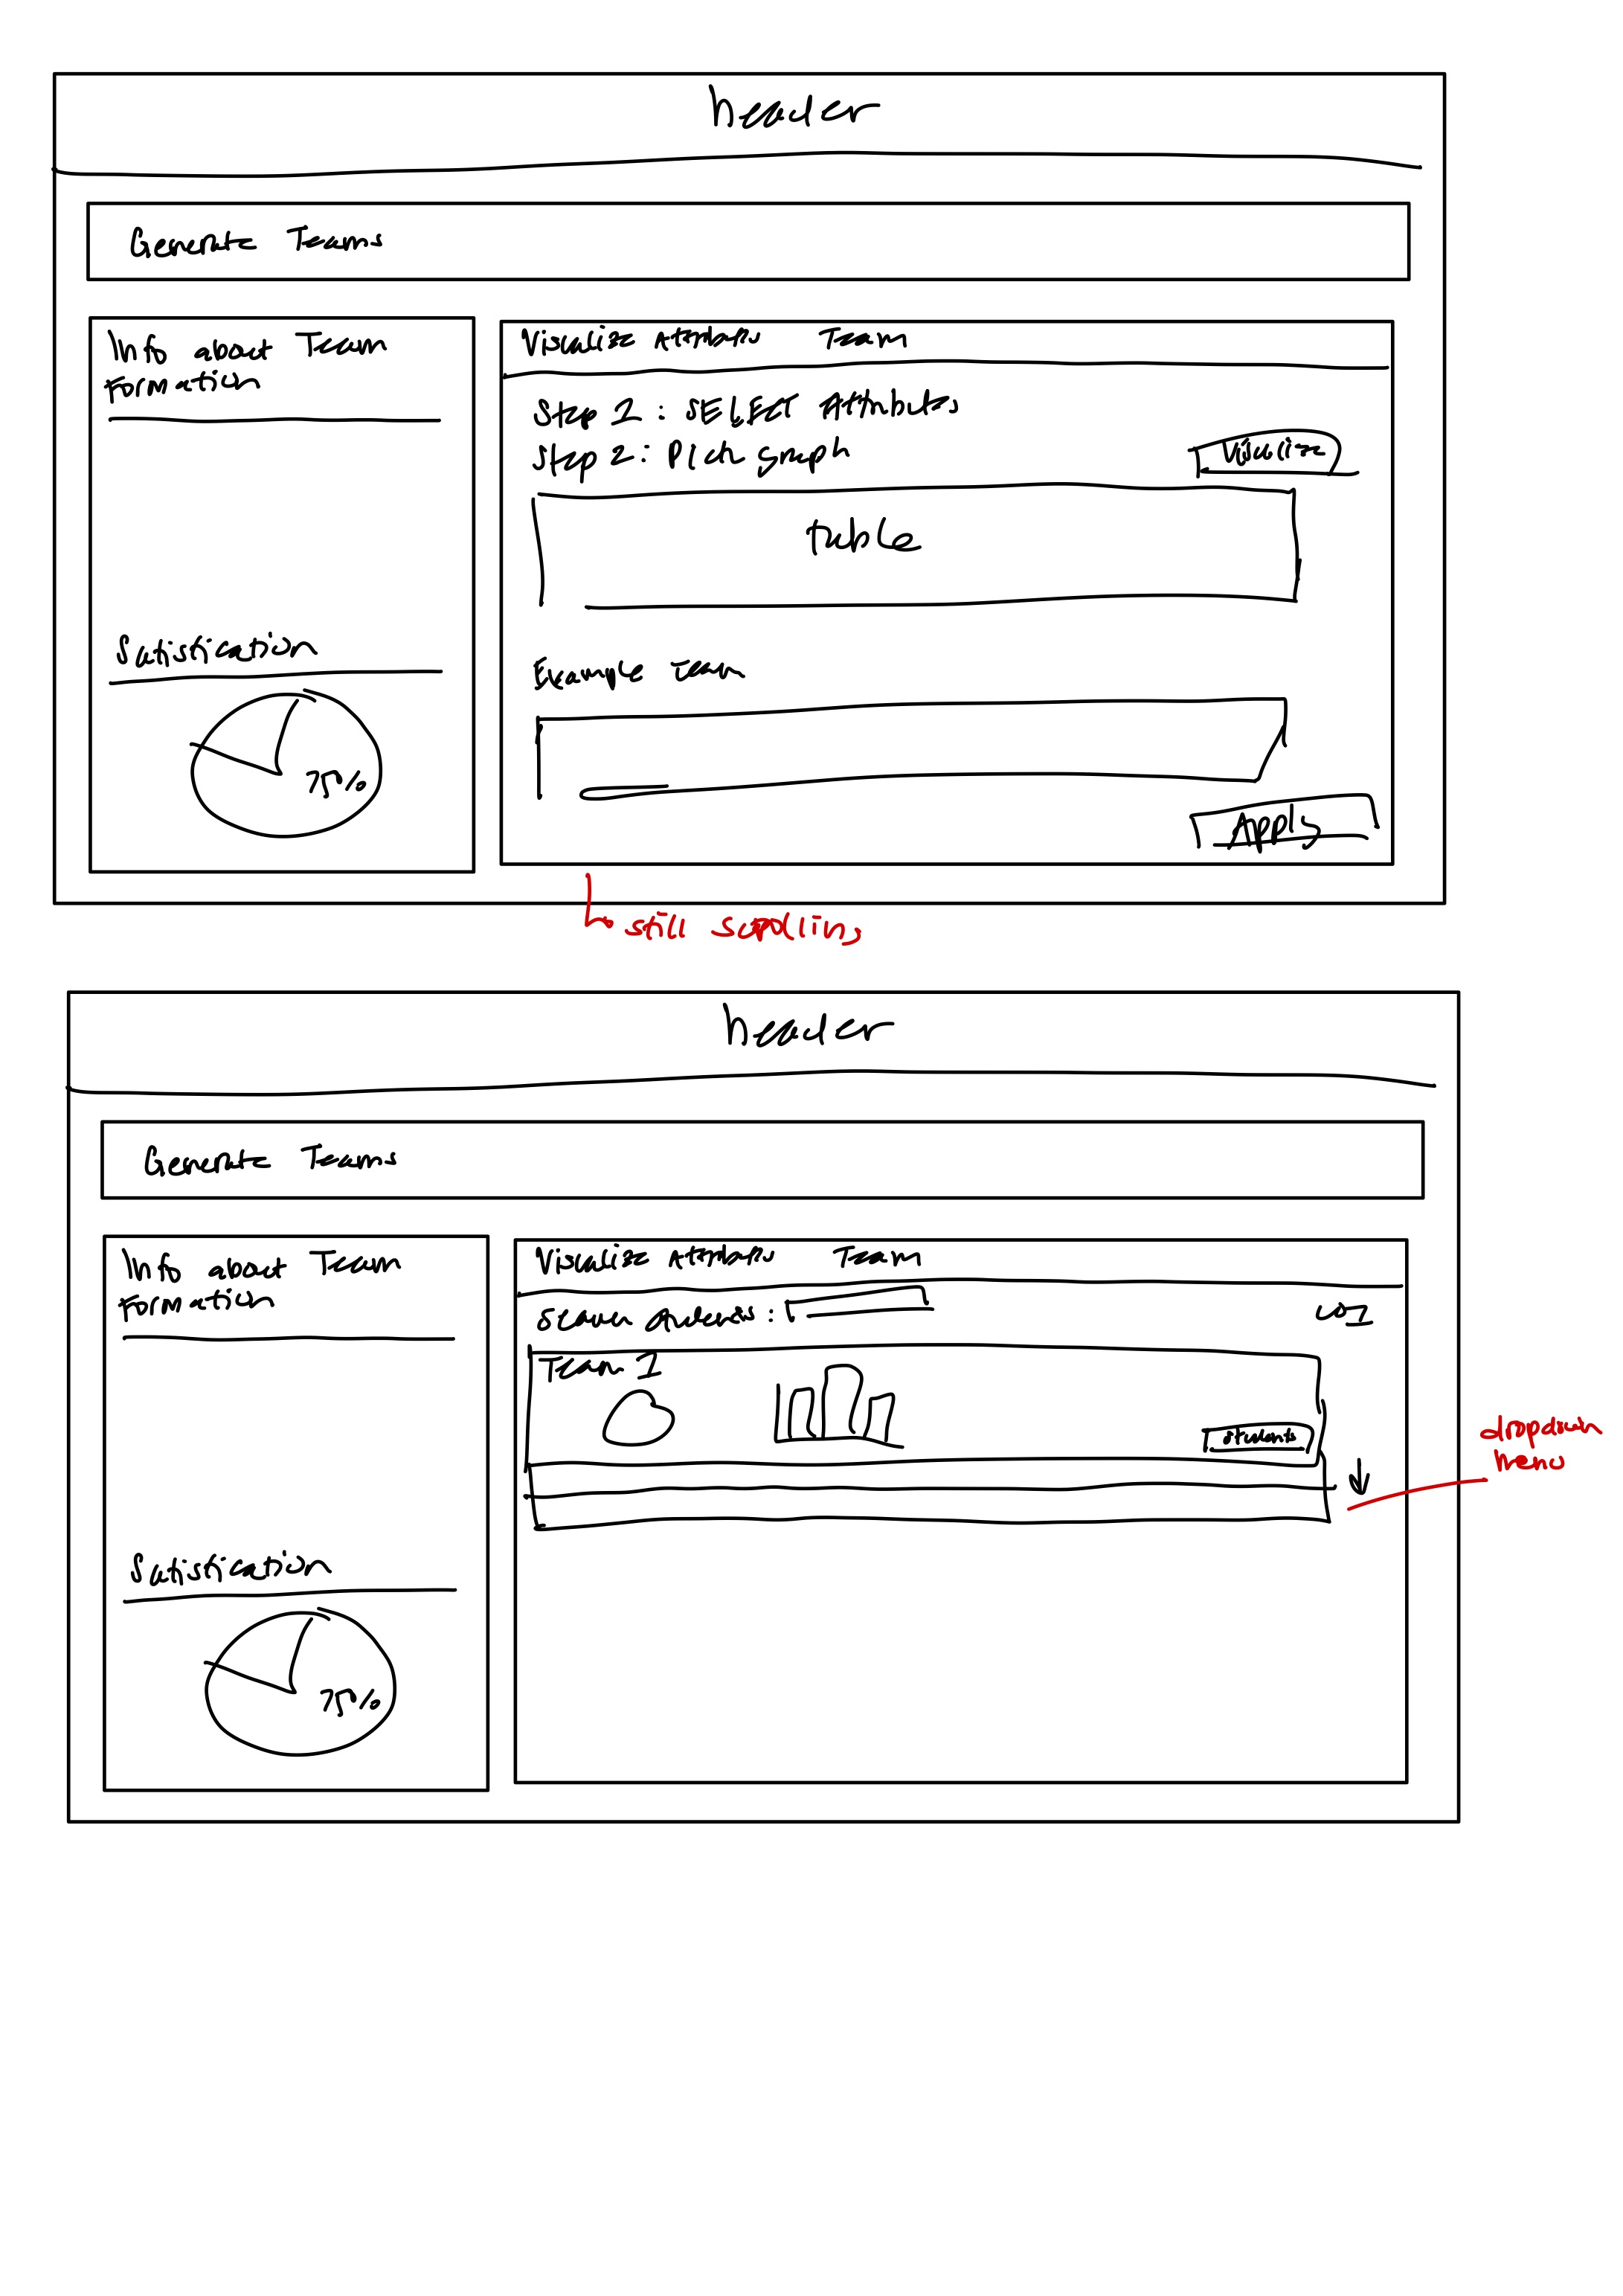 header
Generate Teams
Info about Team
Formation
Satisfication
75%
Visualize Attributes Team
Step 1: SELECT Attributes
Step 2: Pick graph
Visualize
table
Example Team
Apply
still scrolling
header
Generate Teams
Info about Team
Formation
Satisfication
75%
Visualize Attributes Team
Search students:
Team 1
students
dropdown
menu